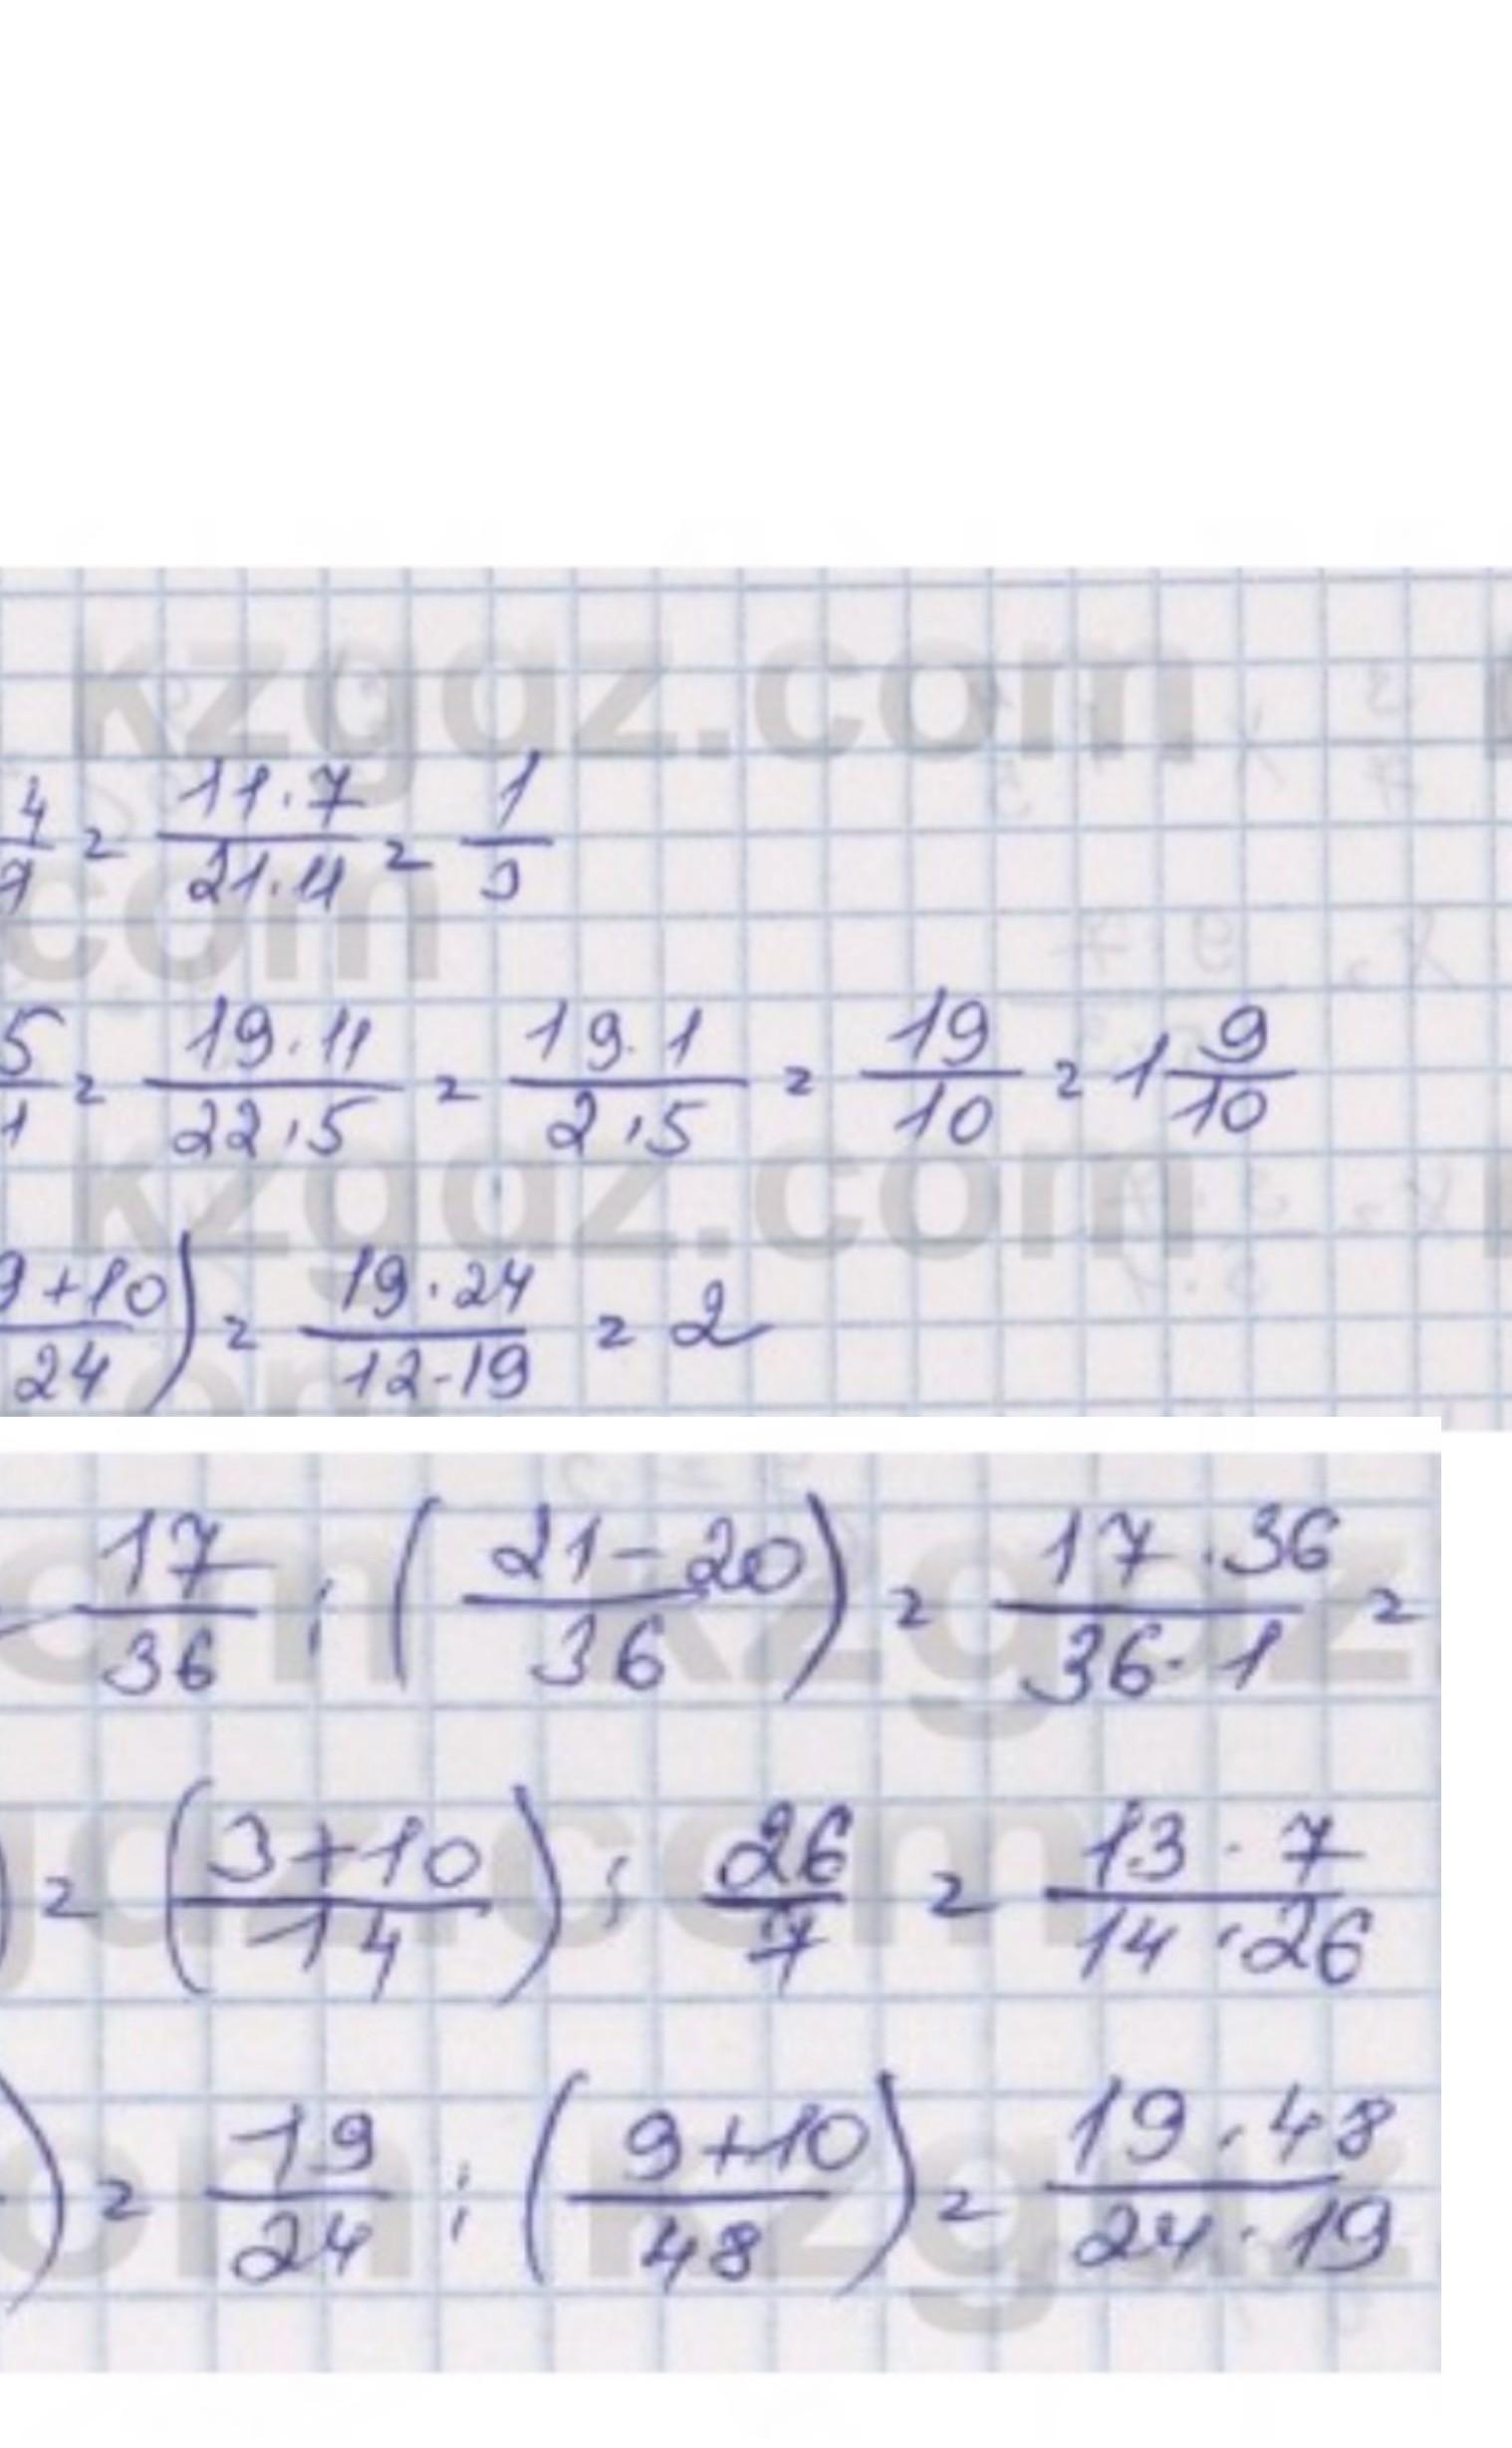 kzgdz.com
4/7 = 11·7/21·11 = 1/3
com
5/1 = 19·11/22·5 = 19·1/2·5 = 19/10 = 1 9/10
kzgdz.com
9+10/24) = 19·24/12·19 = 2
17/36 : (21-20/36) = 17·36/36·1 =
) = (3+10/14) : 26/7 = 13·7/14·26
) = 19/24 : (9+10/48) = 19·48/24·19